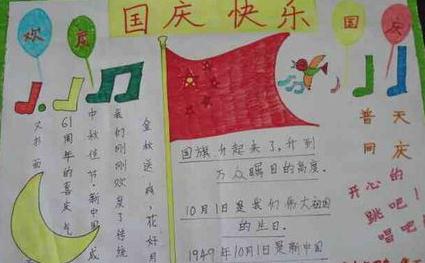 国庆快乐
欢度
国庆
金秋送爽，花好月
我们刚刚欢度了传统
中秋佳节·新中国成
61周年的喜庆气
又扑面
国旗升起来了，升到
万众瞩目的高度。
10月1日是我们伟大祖国
的生日。
1949年10月1日是新中国
普天
同庆
开心的
跳吧！
唱吧！